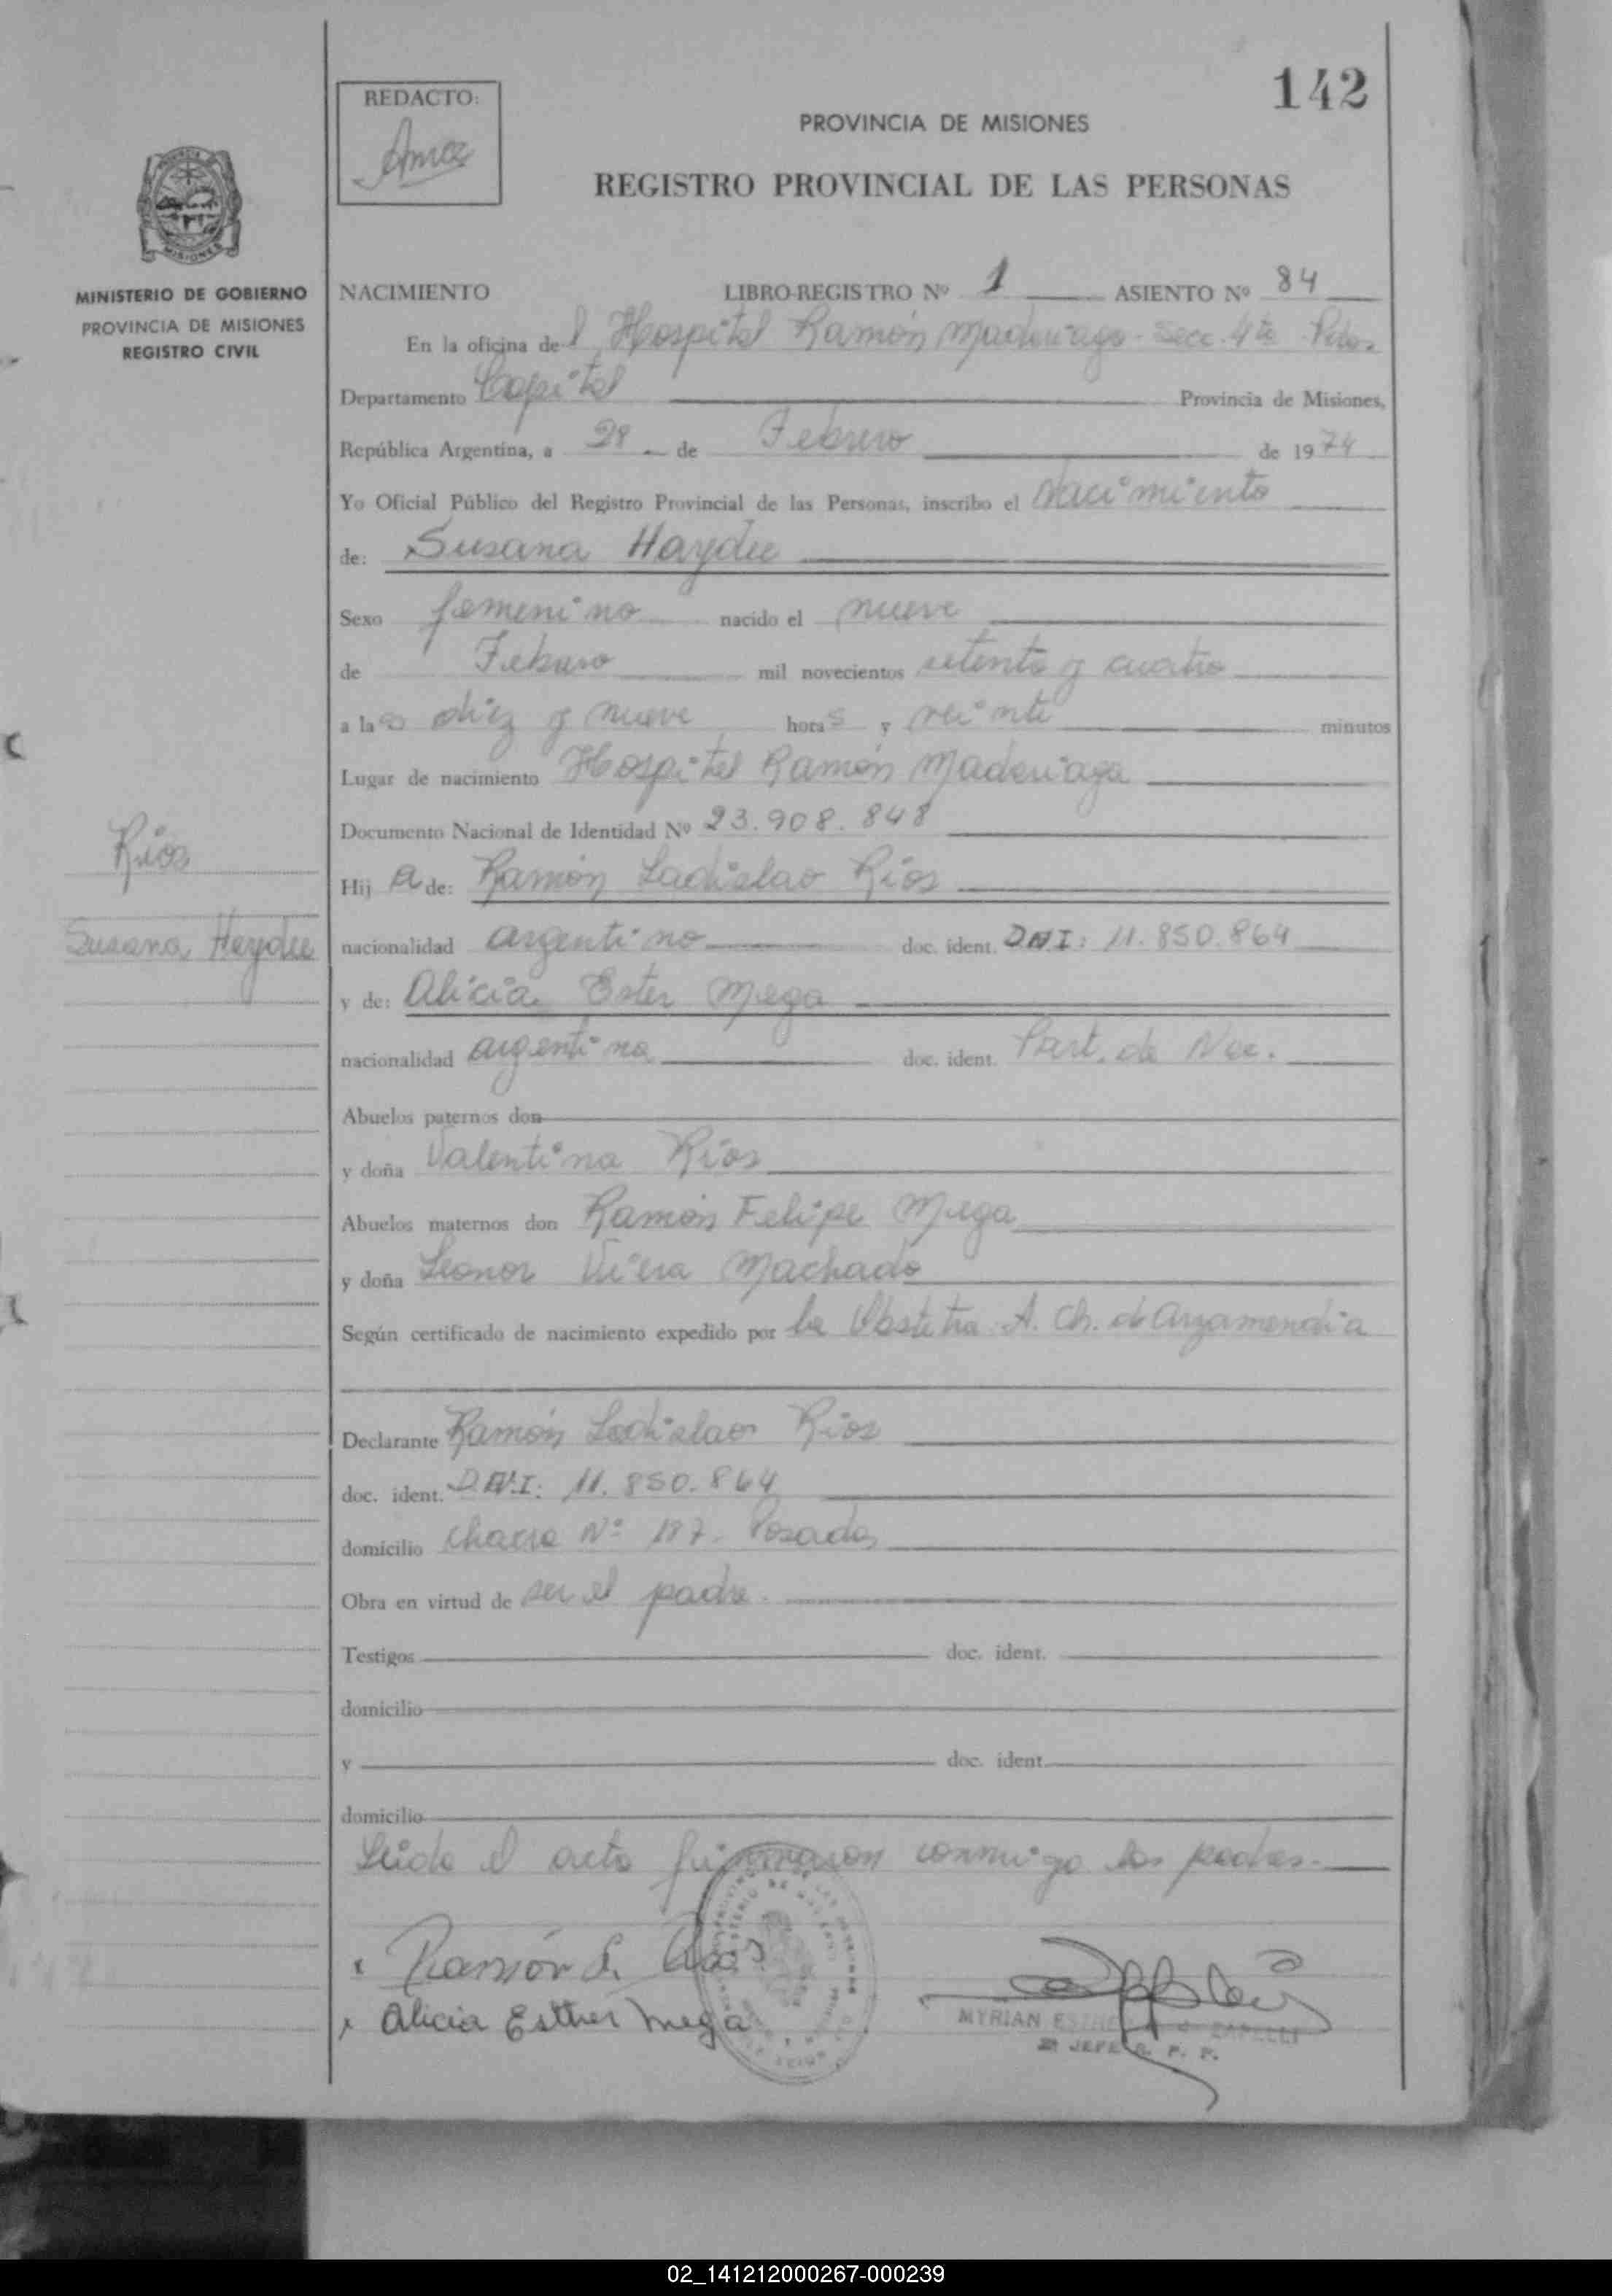 142
REDACTO:
PROVINCIA DE MISIONES
REGISTRO PROVINCIAL DE LAS PERSONAS
MISIONES
MINISTERIO DE GOBIERNO
PROVINCIA DE MISIONES
REGISTRO CIVIL
NACIMIENTO LIBRO-REGISTRO Nº 1 ASIENTO Nº 84
En la oficina del Hospital Ramón Madariaga - Secc. 4ta Pdas.
Departamento Capital Provincia de Misiones,
República Argentina, a 28 de Febrero de 1974
Yo Oficial Público del Registro Provincial de las Personas, inscribo el Nacimiento
de: Susana Haydee
Sexo femenino nacido el nueve
de Febrero mil novecientos setenta y cuatro
a las diez y nueve horas y veinte minutos
Lugar de nacimiento Hospital Ramón Madariaga
Documento Nacional de Identidad Nº 23.908.848
Ríos
Hij a de: Ramón Ladislao Ríos
Susana Haydee
nacionalidad argentino doc. ident. D.N.I: 11.850.864
y de: Alicia Ester Mega
nacionalidad argentina doc. ident. Part. de Nac.
Abuelos paternos don
y doña Valentina Ríos
Abuelos maternos don Ramón Felipe Mega
y doña Leonor Viera Machado
Según certificado de nacimiento expedido por la Obstetra A. Ch. de Arzamendia
Declarante Ramón Ladislao Ríos
doc. ident. D.N.I: 11.850.864
domicilio chacra Nº 187. Posadas
Obra en virtud de ser el padre.
Testigos doc. ident.
domicilio
y doc. ident.
domicilio
Leido el acta firmaron conmigo los padres.
Ramón L. Ríos
Alicia Esther Mega
MYRIAN ZAPELLI
JEFE R. P. P.
02_141212000267-000239